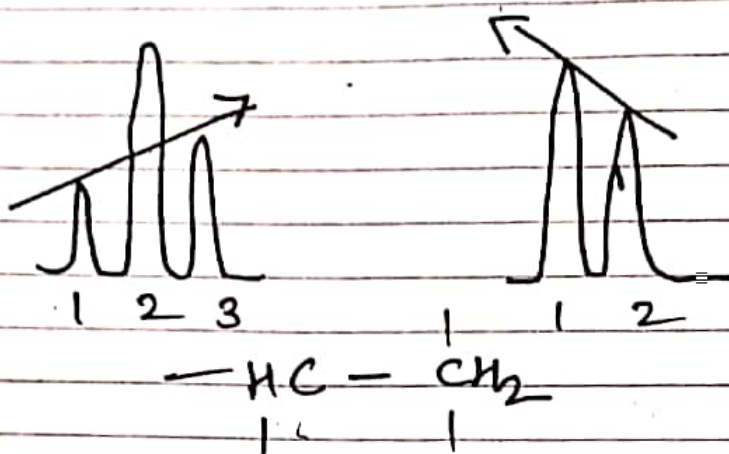 1 2 3 1 2
— HC — CH2